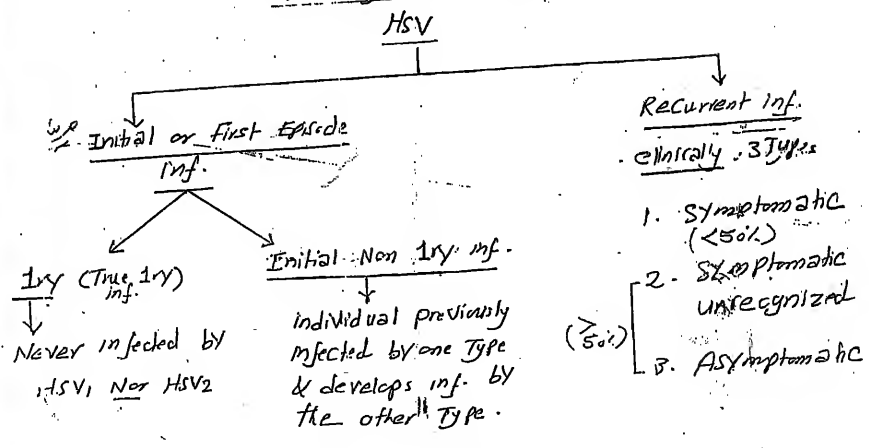 HSV
Initial or First Episode
inf.
1ry (True 1ry)
inf.
Never infected by
HSV1 Nor HSV2
Initial Non 1ry inf.
individual previously
infected by one Type
& develops inf. by
the other Type.
Recurrent inf.
clinically 3 Types
1. Symptomatic
(<50%)
2. Symptomatic
unrecognized
(>50%)
3. Asymptomatic